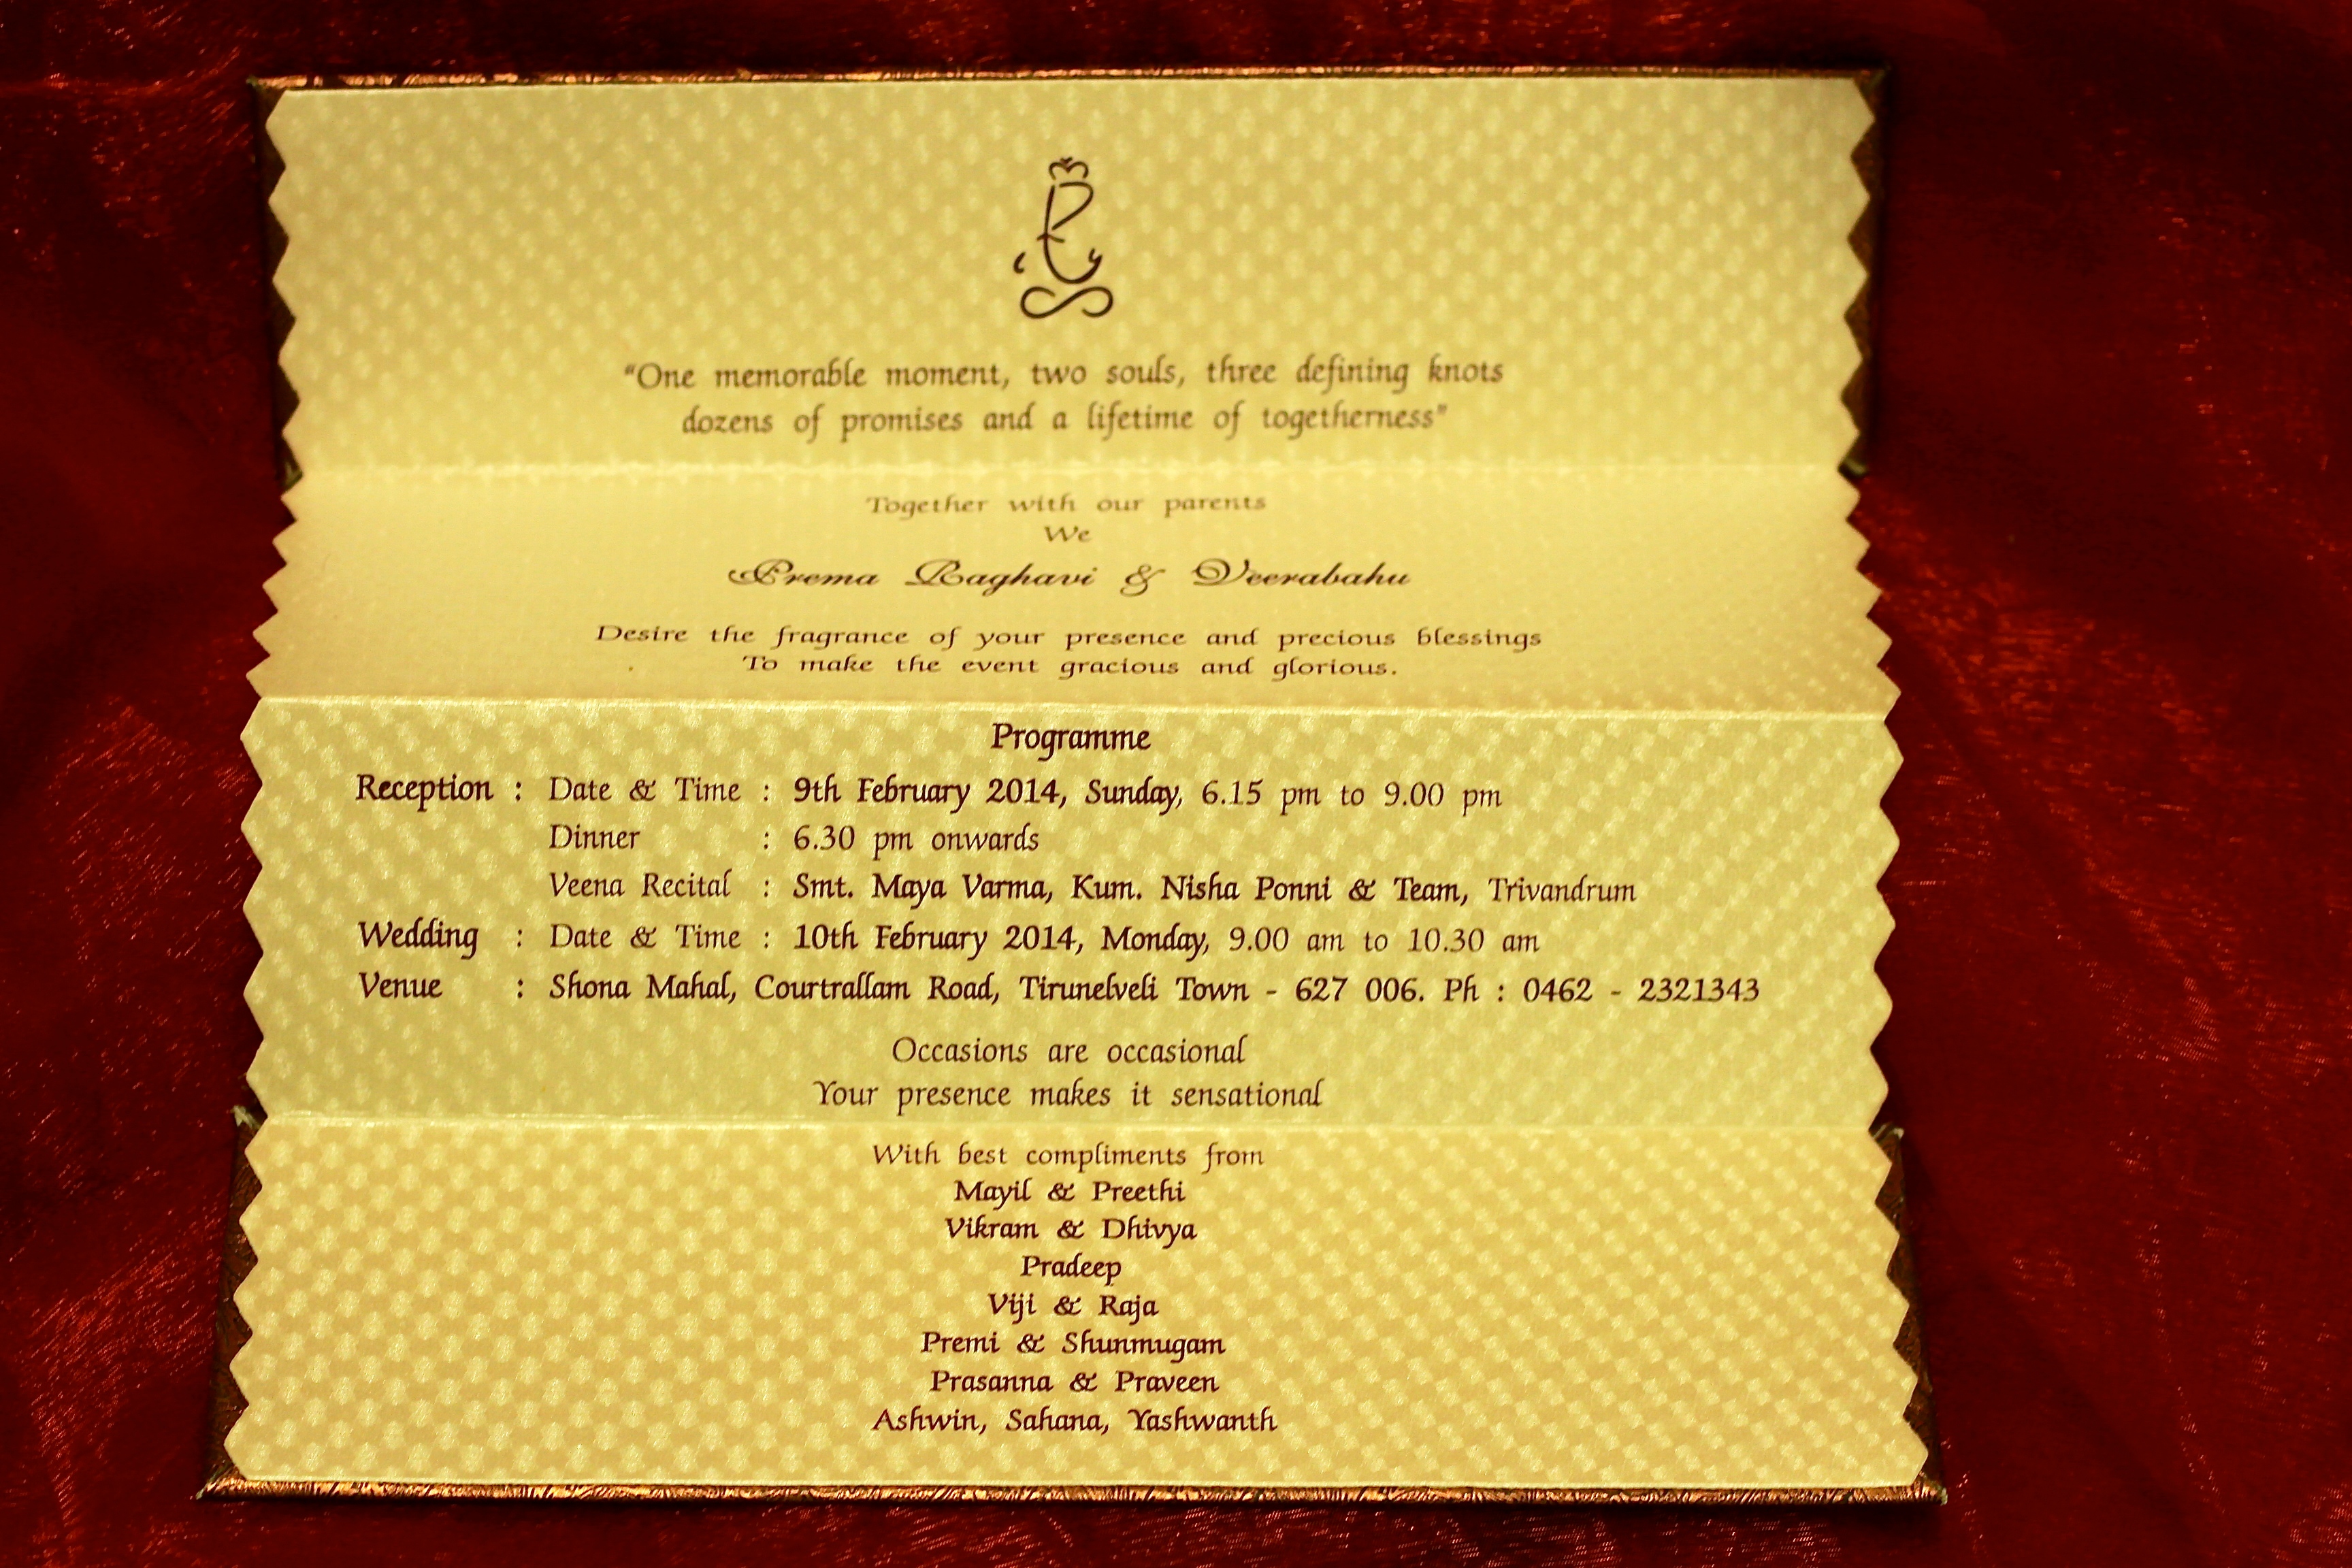 "One memorable moment, two souls, three defining knots
dozens of promises and a lifetime of togetherness"
Together with our parents
We
Prema Raghavi & Veerabahu
Desire the fragrance of your presence and precious blessings
To make the event gracious and glorious.
Programme
Reception : Date & Time : 9th February 2014, Sunday, 6.15 pm to 9.00 pm
Dinner : 6.30 pm onwards
Veena Recital : Smt. Maya Varma, Kum. Nisha Ponni & Team, Trivandrum
Wedding : Date & Time : 10th February 2014, Monday, 9.00 am to 10.30 am
Venue : Shona Mahal, Courtrallam Road, Tirunelveli Town - 627 006. Ph : 0462 - 2321343
Occasions are occasional
Your presence makes it sensational
With best compliments from
Mayil & Preethi
Vikram & Dhivya
Pradeep
Viji & Raja
Premi & Shunmugam
Prasanna & Praveen
Ashwin, Sahana, Yashwanth